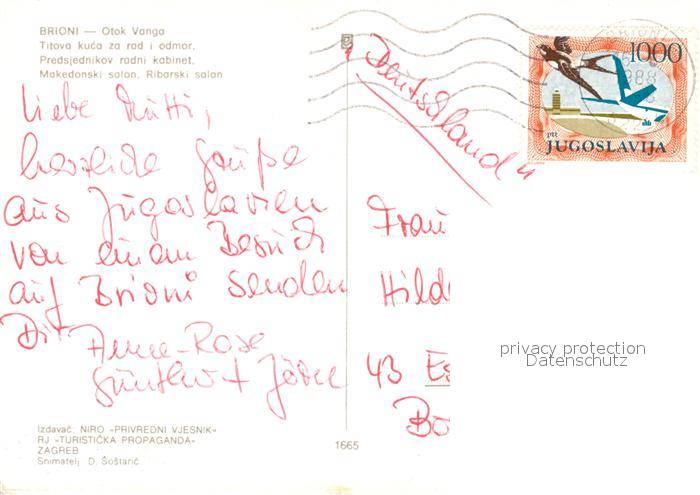 BRIONI — Otok Vanga
Titova kuća za rad i odmor,
Predsjednikov radni kabinet,
Makedonski salon, Ribarski salon
1000
ptt
JUGOSLAVIJA
BRIONI
1988
"Deutschland"
Liebe Mutti,
herzliche Grüße
aus Jugoslavien
von einem Besuch
auf Brioni senden
Dir
Anne-Rose
Günther + Jörn
Frau
Hild
43 Es
Bo
privacy protection
Datenschutz
Izdavač: NIRO »PRIVREDNI VJESNIK«
RJ »TURISTIČKA PROPAGANDA«
ZAGREB
Snimatelj D. Šoštarić
1665